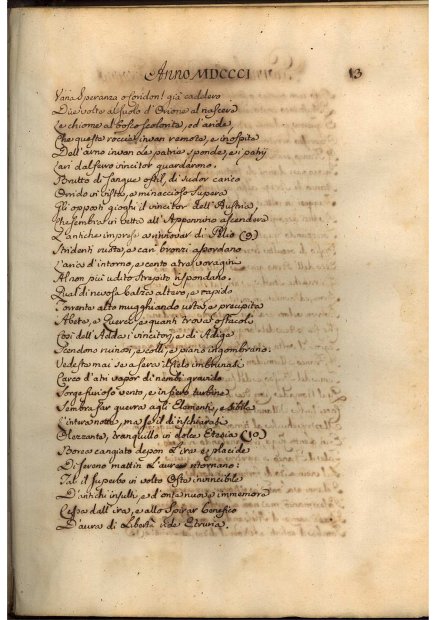 Anno MDCCCI 13
Vana Speranza o Coridon! già caddero
Due volte al suolo d'Orione al nascere
Le chiome al bosco scolorite, ed aride
Che queste roccie invan remote, e inospite
Dell'arno invan le patrie sponde, e i patrj
Lari dal fero vincitor guardarono.
Brutto di sangue ostil, di sudor carico
Orrido in vista, e minaccioso supera
Gli opposti gioghi il vincitor dell'Austria,
Che sembra in vetta all'Appennino ascendere
L'antiche imprese a rinnovar di Pelio (9)
Stridenti ruote, e cavi bronzi assordano
l'aria d'intorno, e cento atre voragini
Al non più udito strepito rispondono.
Qual di nevosa balza altero, e rapido
Torrente alto mugghiando urta, e precipita
Abeti, e Querce, e quanti trova ostacoli
Così dell'Adda i vincitori, e di Adige
Scendono ruinosi, e colli, e piani ingombrano.
Vedeste mai se a sera il Cielo imbrunasi
Carco d'atri vapor di nembi gravido
Sorge furioso vento, e in fiero turbine
Sembra far guerra agli Elementi, e sibila
L'intera notte, ma se il dì rischiarasi
Olezzante, tranquillo in dolce Etesia (10)
Borea cangiato depon l'ira e placide
Di sereno mattin l'aure ritornano:
Tal il superbo in volto Oste invincibile
D'antichi insulti, e d'onte nuove immemore
Cessa dall'ira, e allo spirar benefico
D'aura di Libertà ride Etruria.